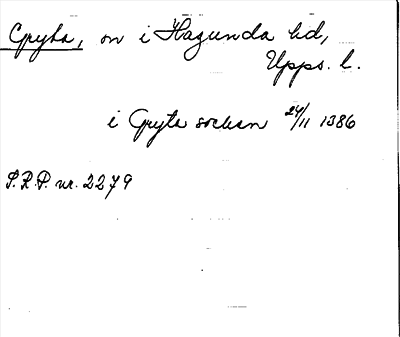 Gryta, sn i Hagunda hd,
Upps. l.
i Gryta socken 24/11 1386
S.R.P. nr. 2279